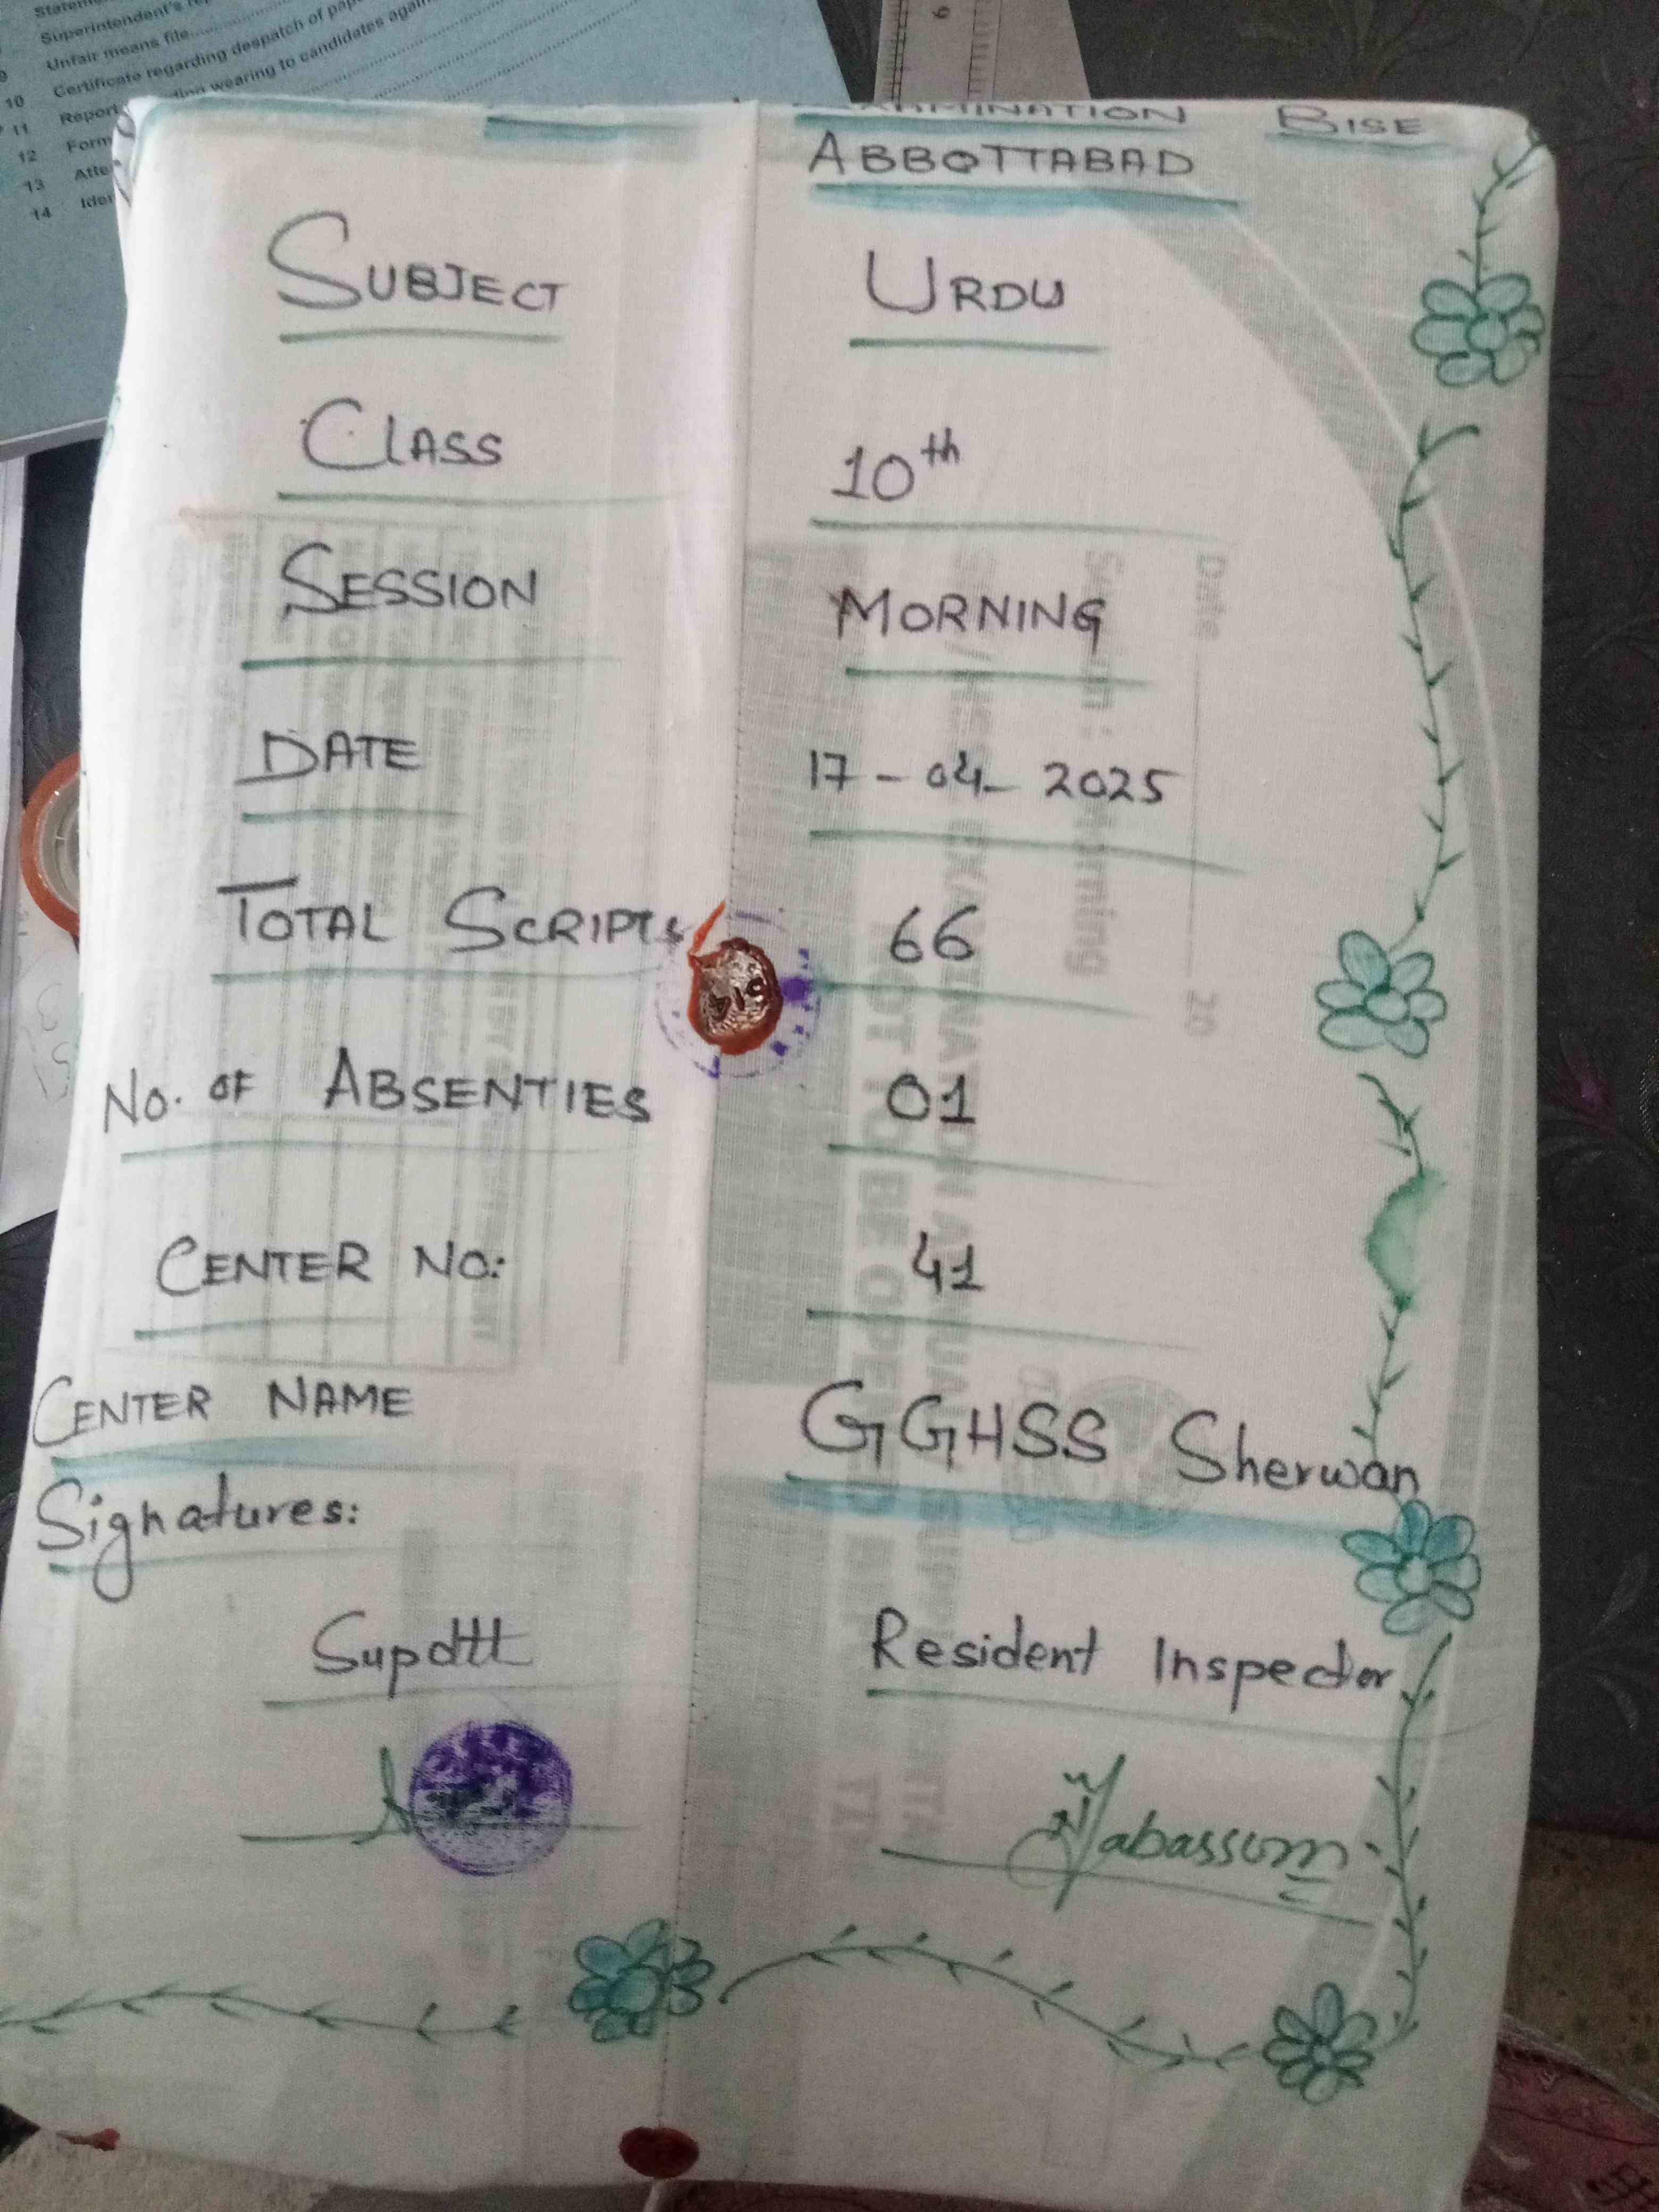 Superintendent's
Unfair means file
10 Certificate regarding despatch of
11 Report wearing to candidates
12 Form
13
14
EXAMINATION BISE
ABBOTTABAD
SUBJECT URDU
CLASS 10th
SESSION MORNING
DATE 17-04-2025
TOTAL SCRIPTS 66
NO. OF ABSENTIES 01
CENTER NO: 41
CENTER NAME GGHSS Sherwan
Signatures:
Supdtt Resident Inspector
Tabassum